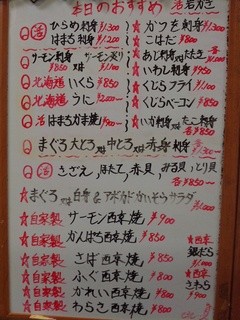 本日のおすすめ 活岩がき
ひらめ刺身 ¥1300
はまち刺身 ¥1200
サーモン刺身 サーモン炙り
¥850 ¥850
北海道 いくら ¥850
北海道 うに ¥2200〜
活 はまちカマ焼 ¥900
カツオ刺身 ¥1300
こはだ ¥800
あじ刺身又はたたき
いわし刺身 ¥950
くじらフライ ¥1100
くじらベーコン ¥850
いか刺身又はたこ刺身
各¥850
まぐろ 大とろ 又は 中とろ 又は 赤身 刺身
さざえ、ほたて、赤貝、みる貝、とり貝
各¥850〜
まぐろ 又は 白身 & アボカドかいそうサラダ
¥1000
自家製 サーモン西京焼 ¥900
自家製 かんぱち西京焼 ¥850
自家製 さば西京焼 ¥850
自家製 ふぐ西京焼 ¥850
自家製 かれい西京焼 ¥800
自家製 わらさ西京焼 ¥800
西京
銀だら
¥1000
西京
さわら
¥900